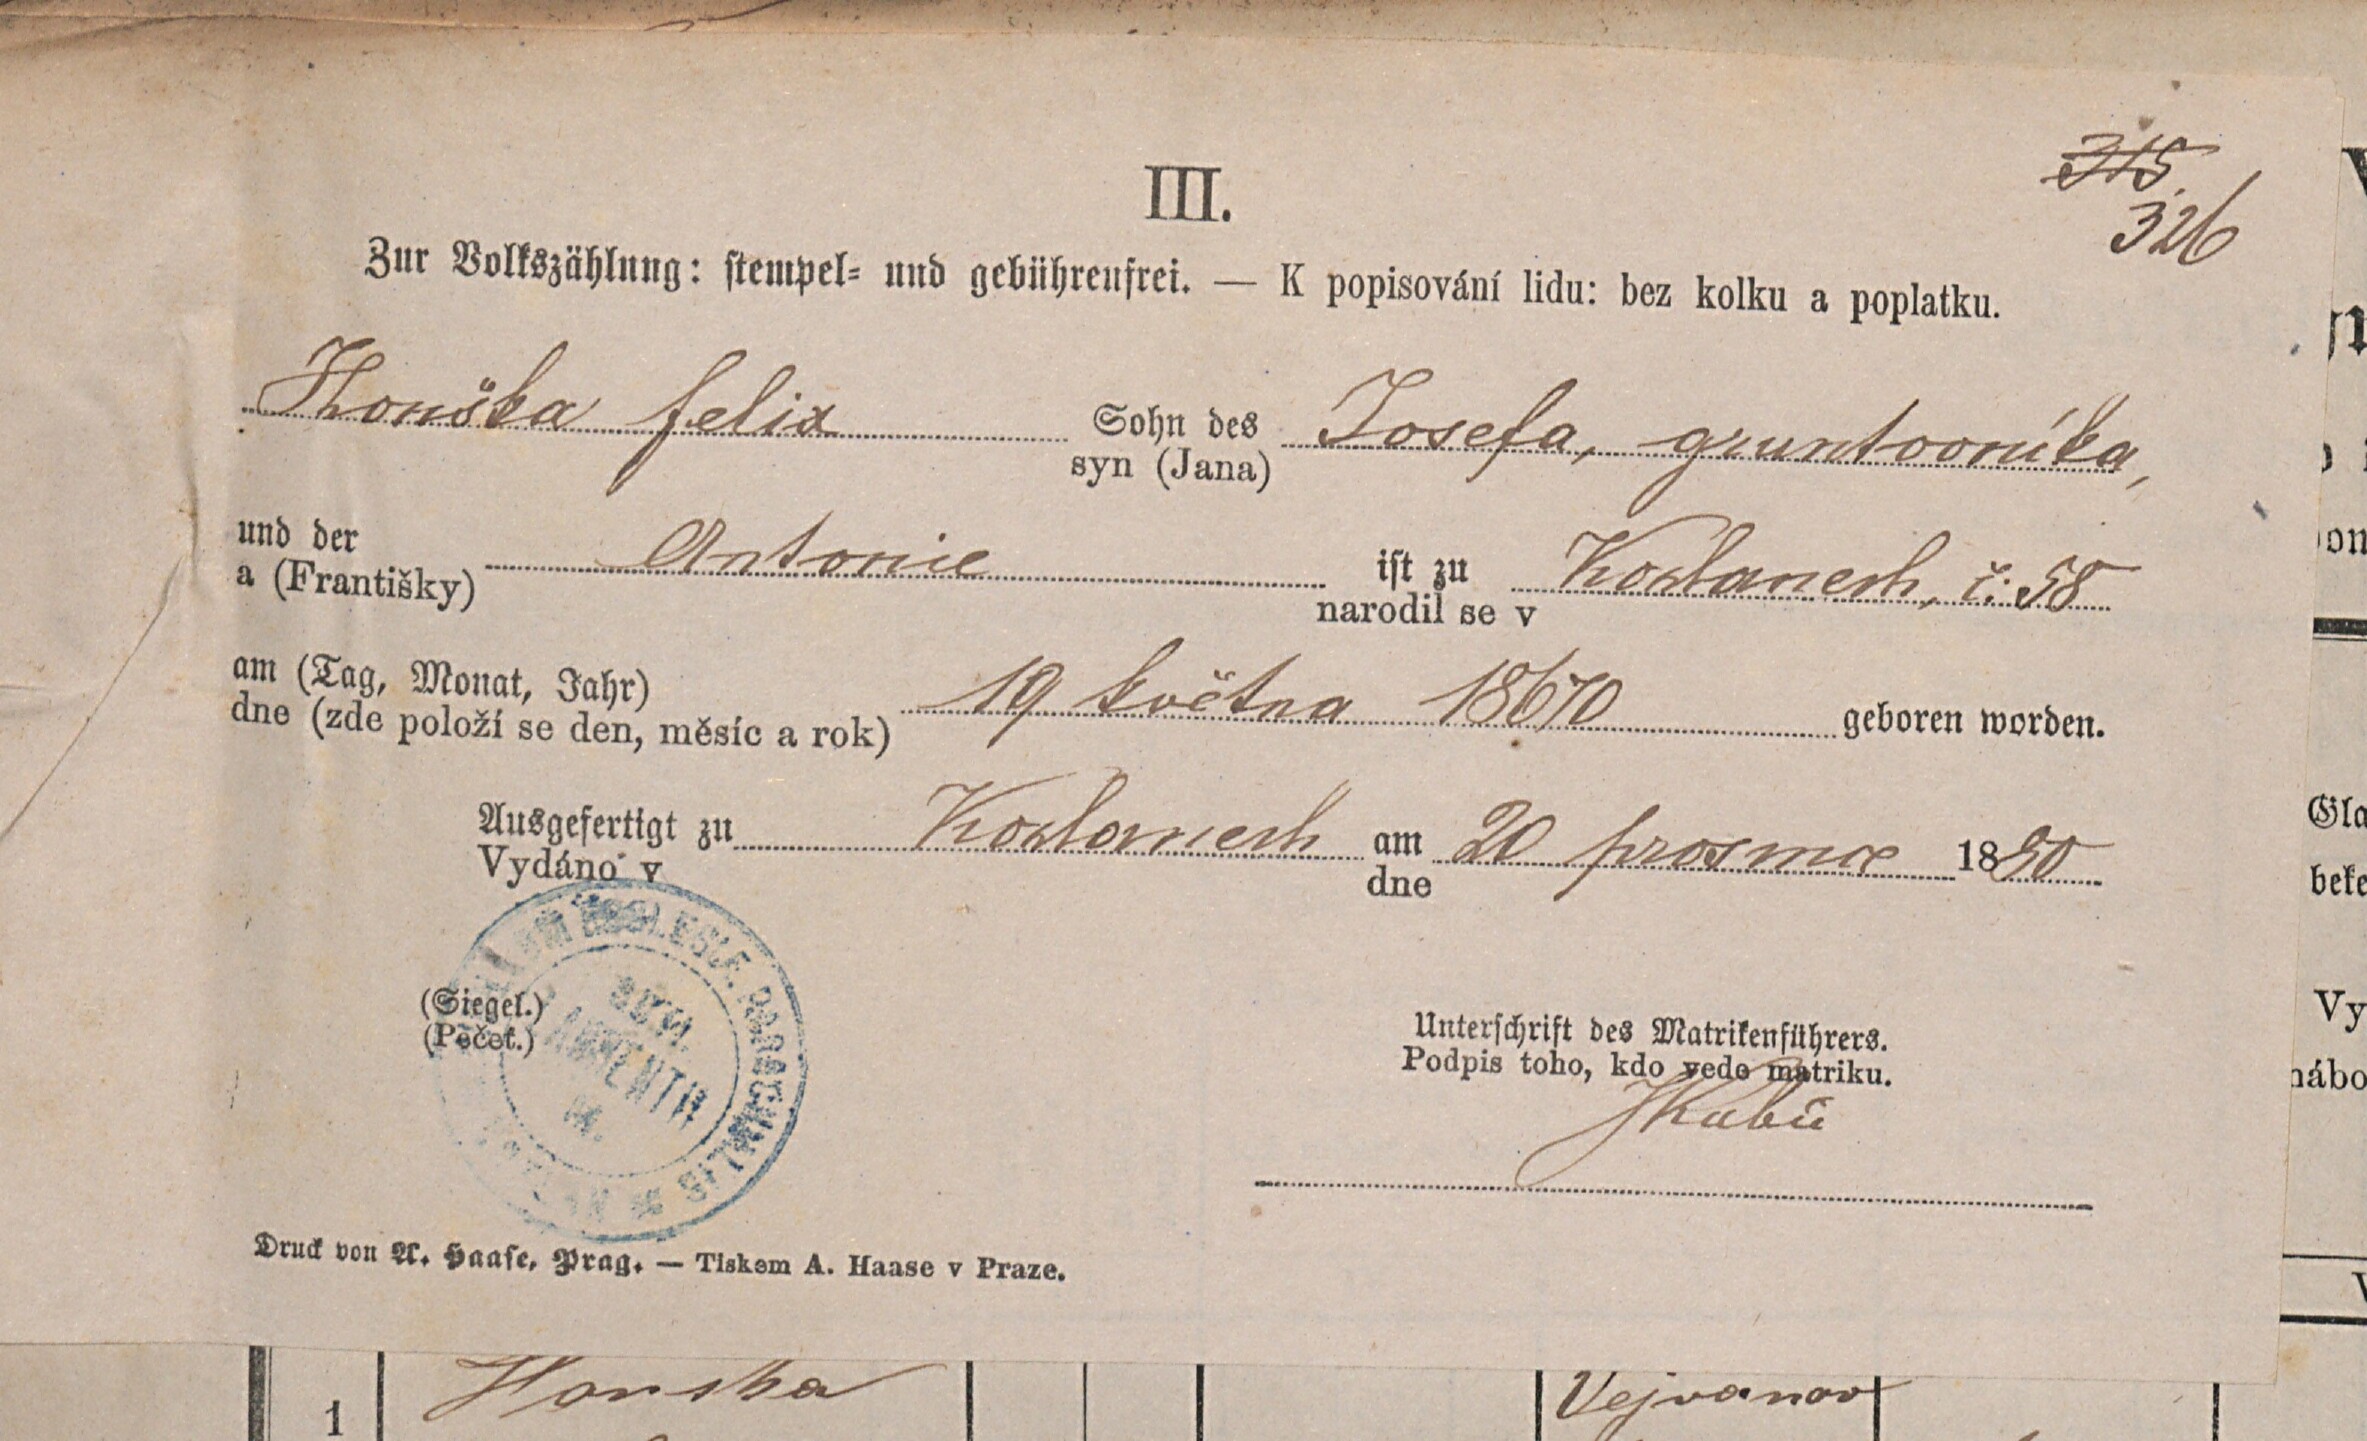 315
326
III.
Zur Volkszählung: stempel- und gebührenfrei. — K popisování lidu: bez kolku a poplatku.
Honška Felix Sohn des Josefa, gruntovníka,
syn (Jana)
und der Antonie ist zu Kožlanech, č. 58
a (Františky) narodil se v
am (Tag, Monat, Jahr) 19 května 1870 geboren worden.
dne (zde položí se den, měsíc a rok)
Ausgefertigt zu Kožlanech am 20 prosince 1890
Vydáno v dne
ECCLESIÆ PAROCHIALIS
(Siegel.)
(Pečeť.)
Unterschrift des Matrikenführers.
Podpis toho, kdo vede matriku.
Druck von A. Haase, Prag. — Tiskem A. Haase v Praze.
Gla
beke
Vy
nábo
1 Honska Vejvanov